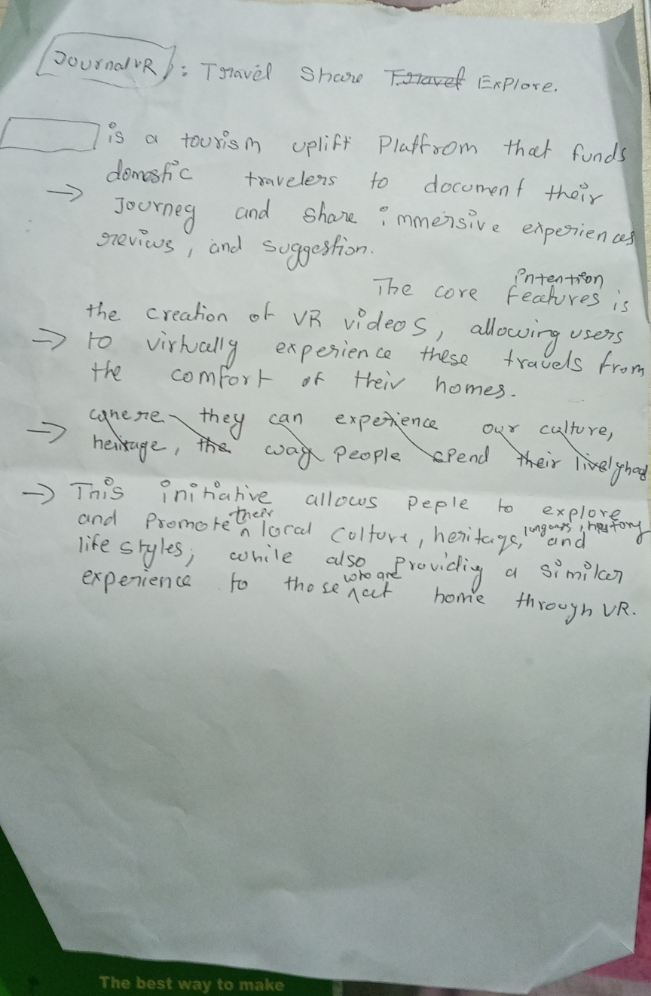 JournalVR : Travel Share Travel Explore.
is a tourism uplift Platfrom that funds
domestic travelers to document their
→ Journey and share immersive experiences
reviws, and suggestion.
intention
The core features is
the creation of VR videos, allowing users
→ to virtually experience these travels from
the comfort of their homes.
→ where they can experience our culture,
heritage, the way people spend their livelyhod
→ This initiative allows peple to explore
and Promote their local culture, heritage, languages, history and
life styles, while also providing a similar
experience to those who are at home through VR.
The best way to make